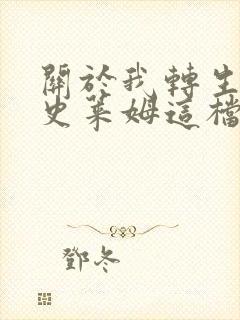 關於我轉生
史萊姆這檔
鄧冬